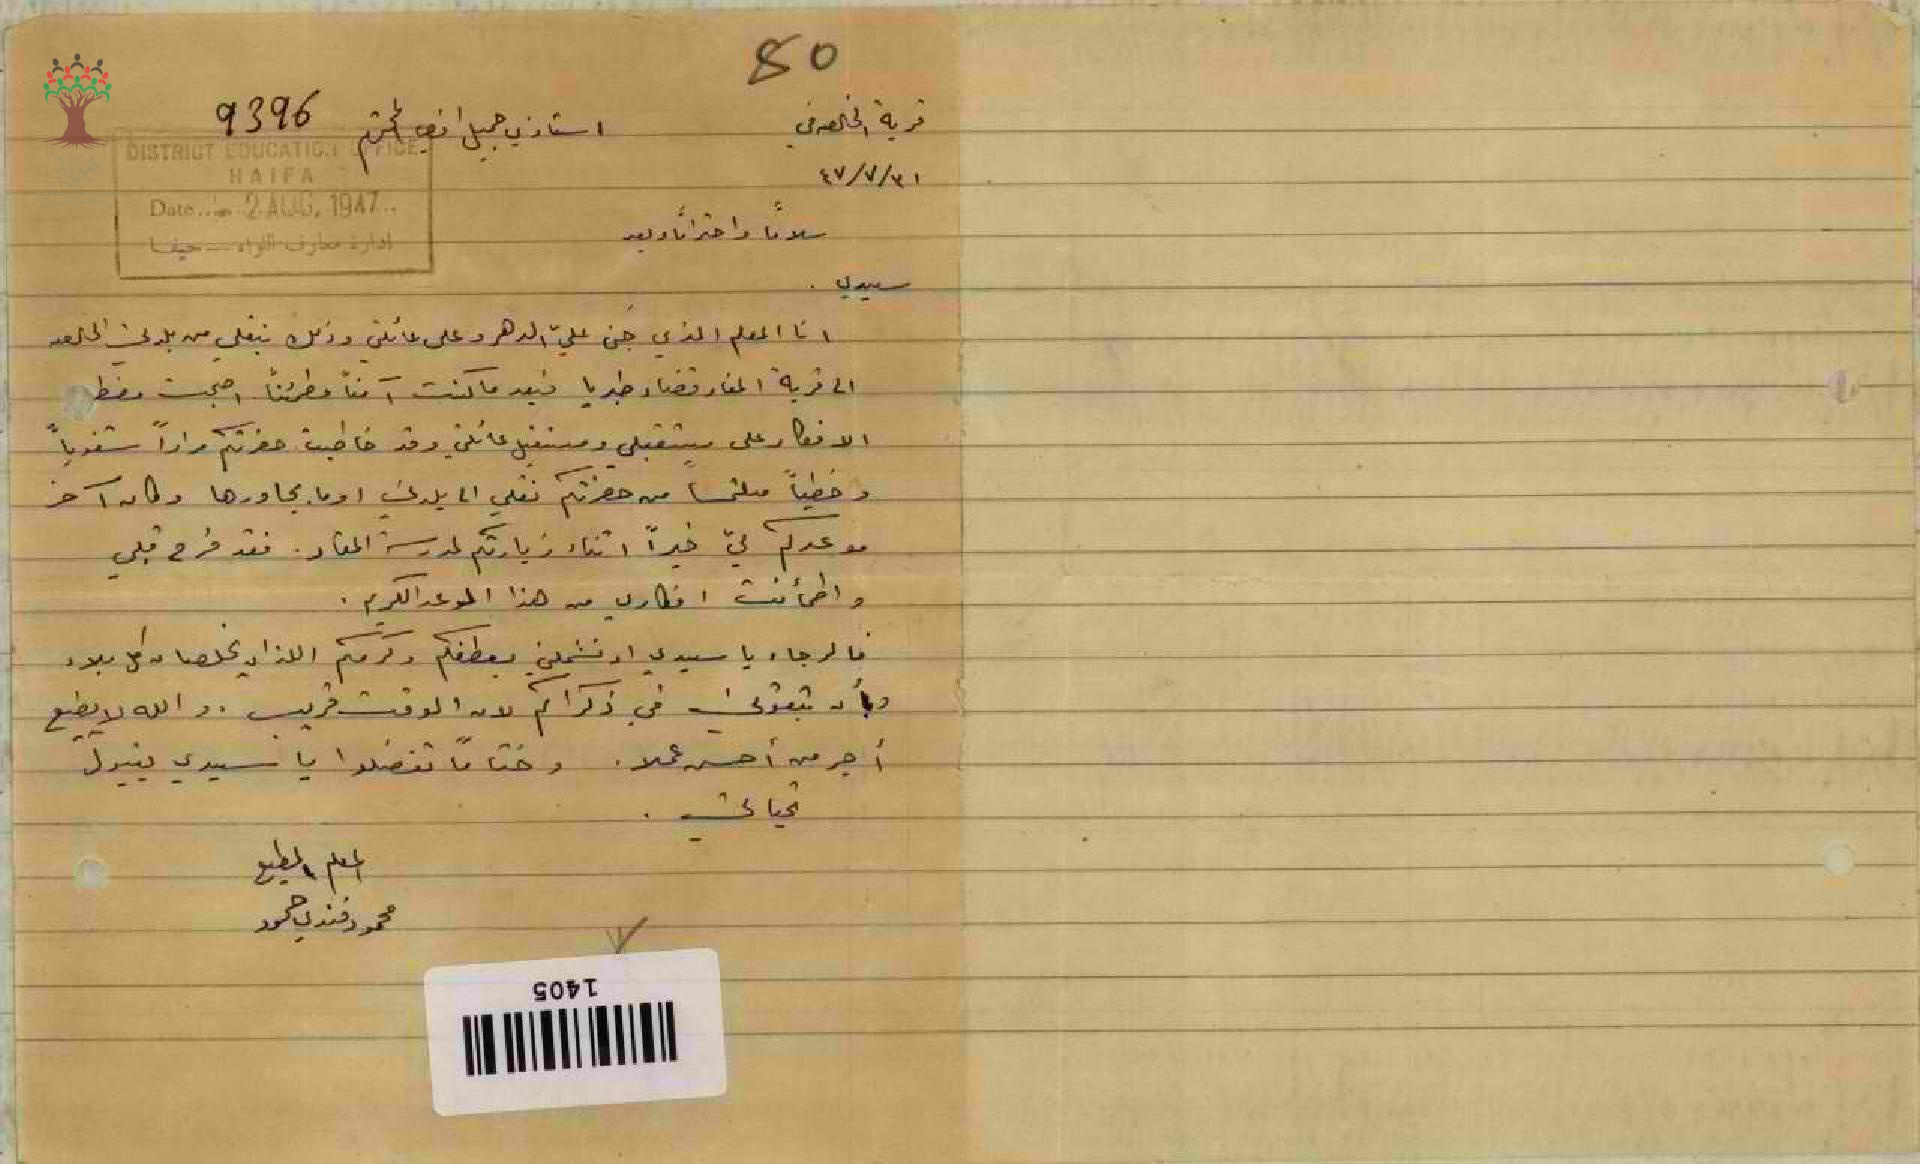 80
قرية الخالصه في
استاذي جميل افندي المحترم
9396
٤٧/٧/٣١
DISTRICT EDUCATION OFFICE
HAIFA
Date 2 AUG. 1947
ادارة معارف اللواء — حيفا
سلاماً واحتراماً وبعد
سيدي .
انا المعلم الذي جنى عليّ الدهر وعلى عائلتي وذلك بنقلي من بلدتي الخالصه
الى قرية المغار قضاء طبريا فبعد ما كنت آمناً مطمئناً اصبحت مضطرب
الافكار على مستقبلي ومستقبل عائلتي وقد خاطبت حضرتكم مراراً شفوياً
وخطياً ملتمساً من حضرتكم نقلي الى بلدتي او ما يجاورها وكان آخر
موعدكم ليّ خيراً اثناء زيارتكم لمدرسة المغار . فقد فرح قلبي
واطمأنت افكاري من هذا الموعد الكريم .
فالرجاء يا سيدي ان تشملني بعطفكم وكرمكم اللذان يخلصا من كل بلاء
وبأن تبقوني في ذكراكم لان الوقت قريب . والله لا يضيع
أجر من أحسن عملا . وختاماً تفضلوا يا سيدي بقبول
تحياتي .
المعلم المطيع
محمود فندي حمود
1405